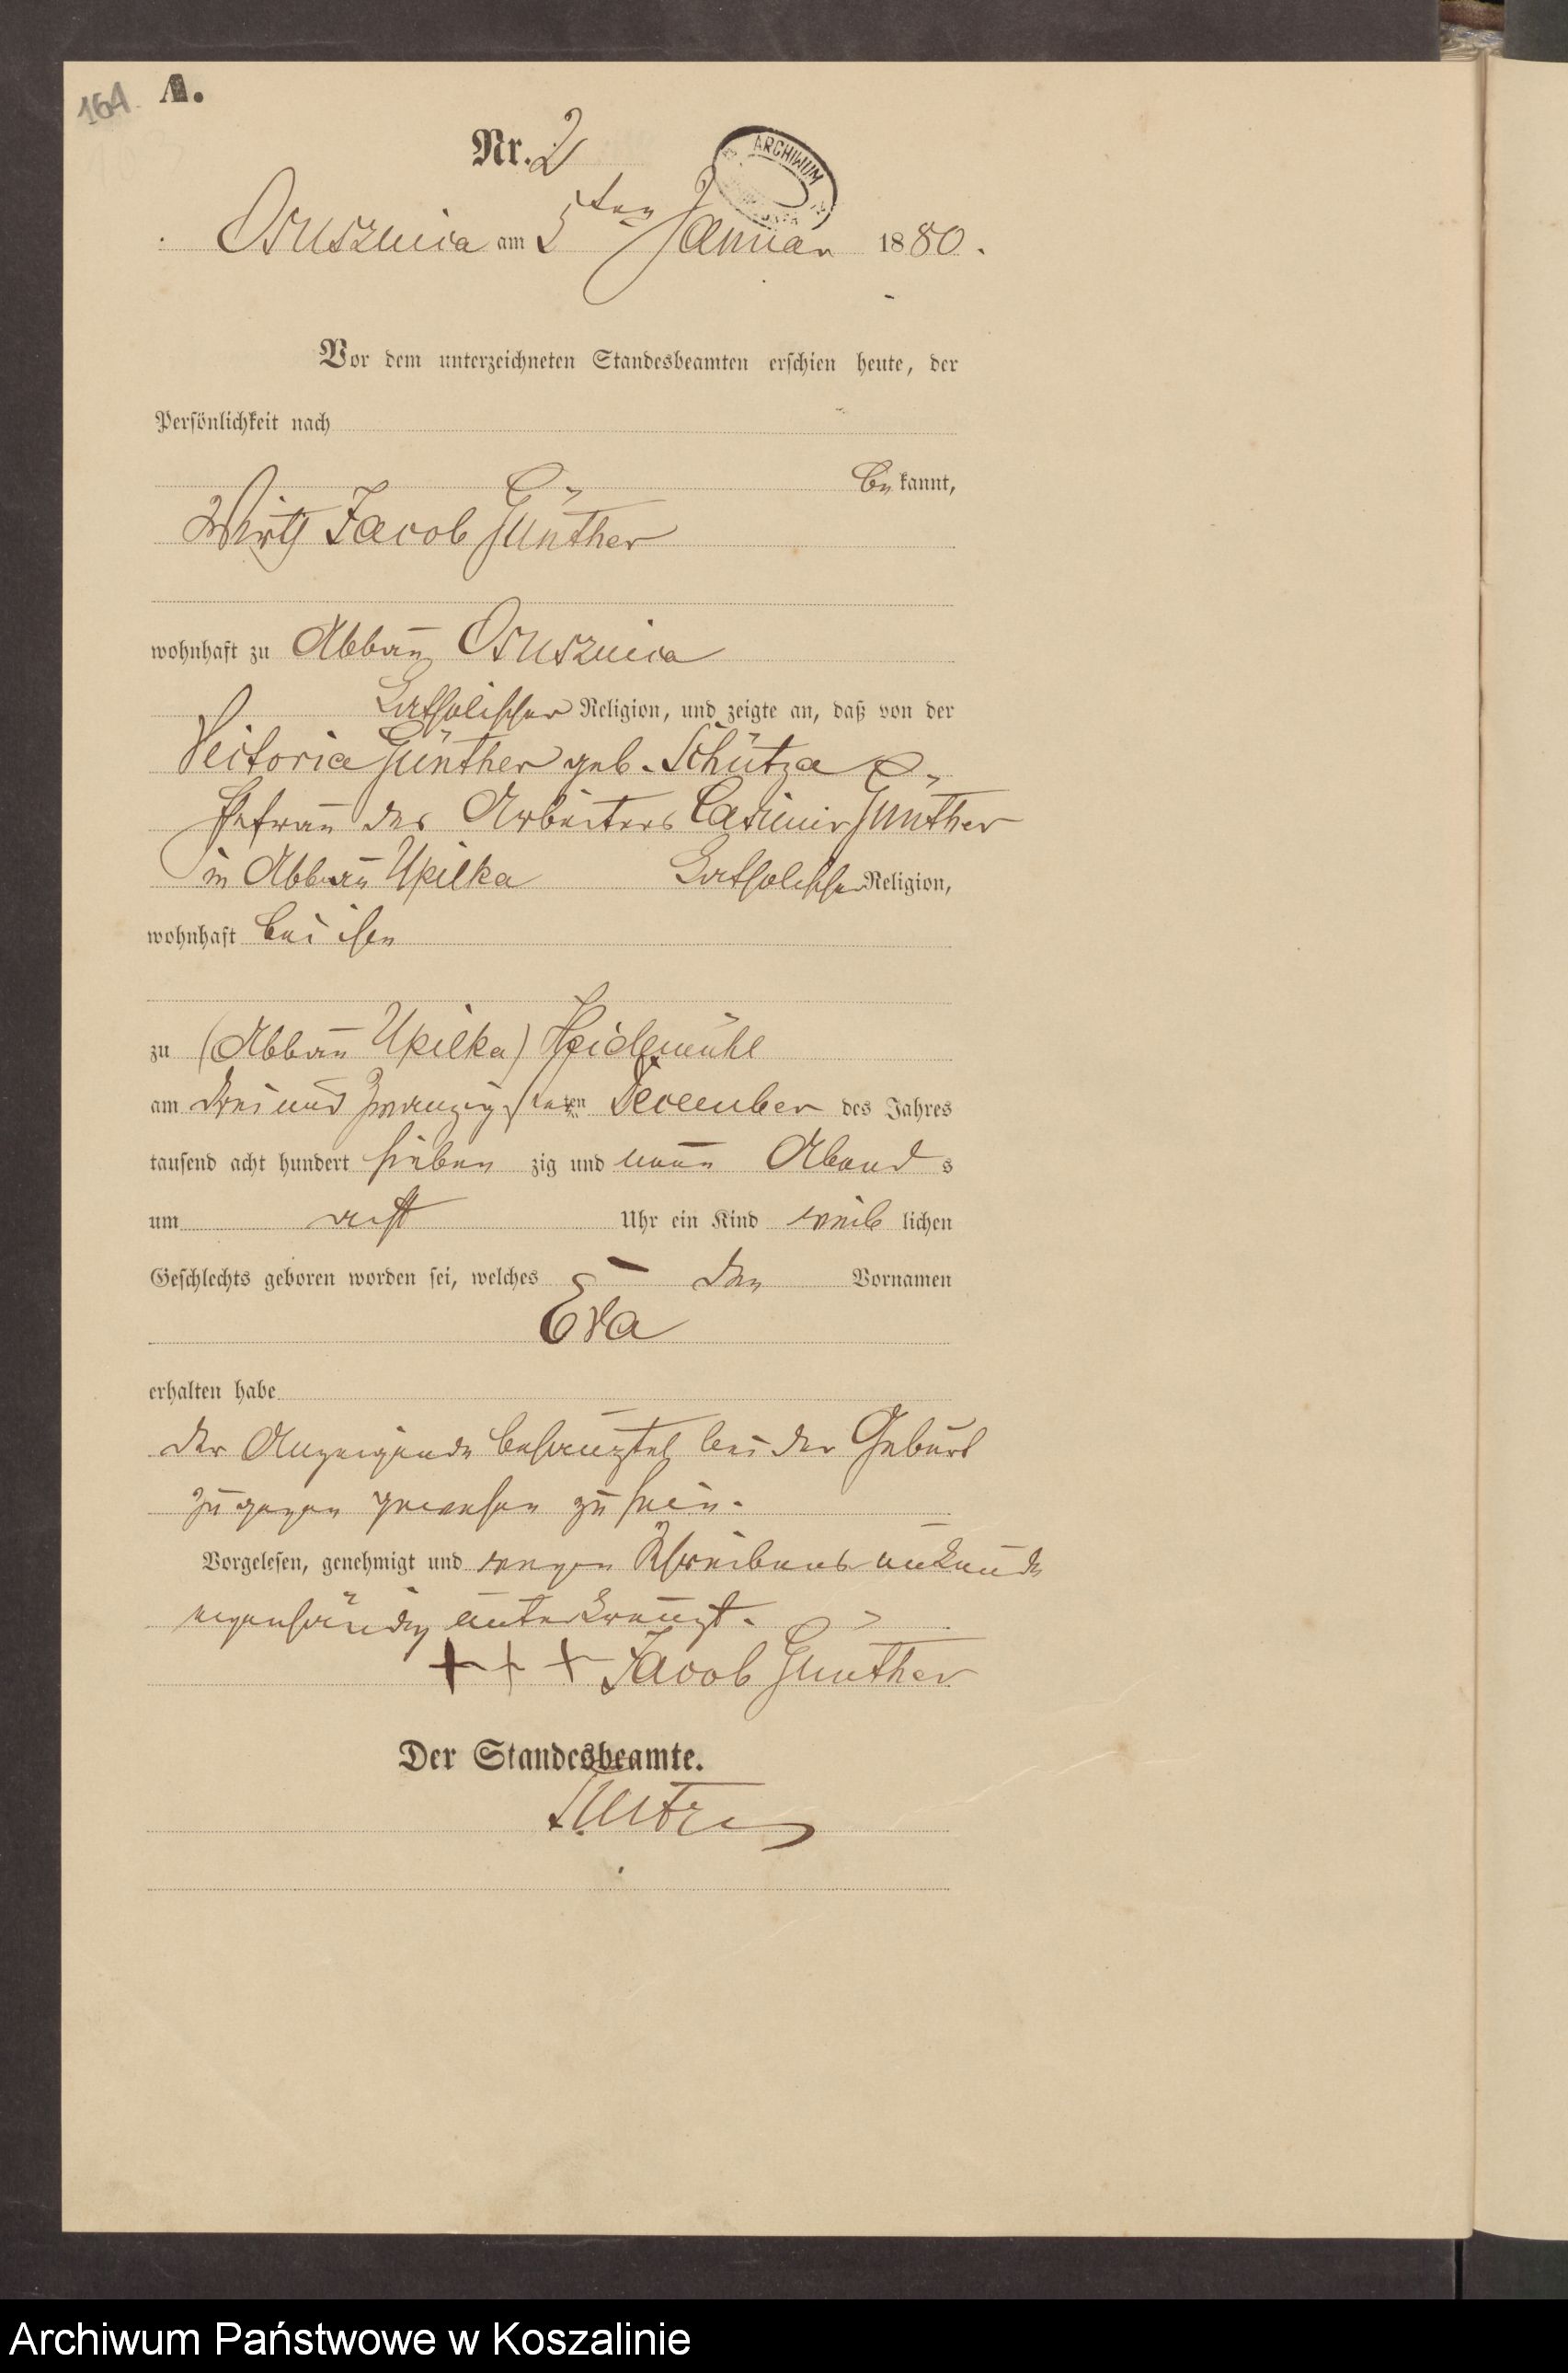 164 A.
Nr. 2
ARCHIWUM
Osusznica am 5ten Januar 1880.
Vor dem unterzeichneten Standesbeamten erschien heute, der
Persönlichkeit nach
bekannt,
Wirth Jacob Günther
wohnhaft zu Abbau Osusznica
katholischer Religion, und zeigte an, daß von der
Victoria Günther geb. Schütza
Ehefrau des Arbeiters Casimir Günther
in Abbau Upilka katholischer Religion,
wohnhaft bei ihm
zu (Abbau Upilka) Heidemühl
am drei und zwanzigsten December des Jahres
tausend acht hundert sieben zig und neun Abend s
um acht Uhr ein Kind weib lichen
Geschlechts geboren worden sei, welches — den Vornamen
Eva
erhalten habe
der Anzeigende behauptet bei der Geburt
zugegen gewesen zu sein.
Vorgelesen, genehmigt und wegen Schreibens unkunde
eigenhändig unterkreuzt.
+ + + Jacob Günther
Der Standesbeamte.
Archiwum Państwowe w Koszalinie